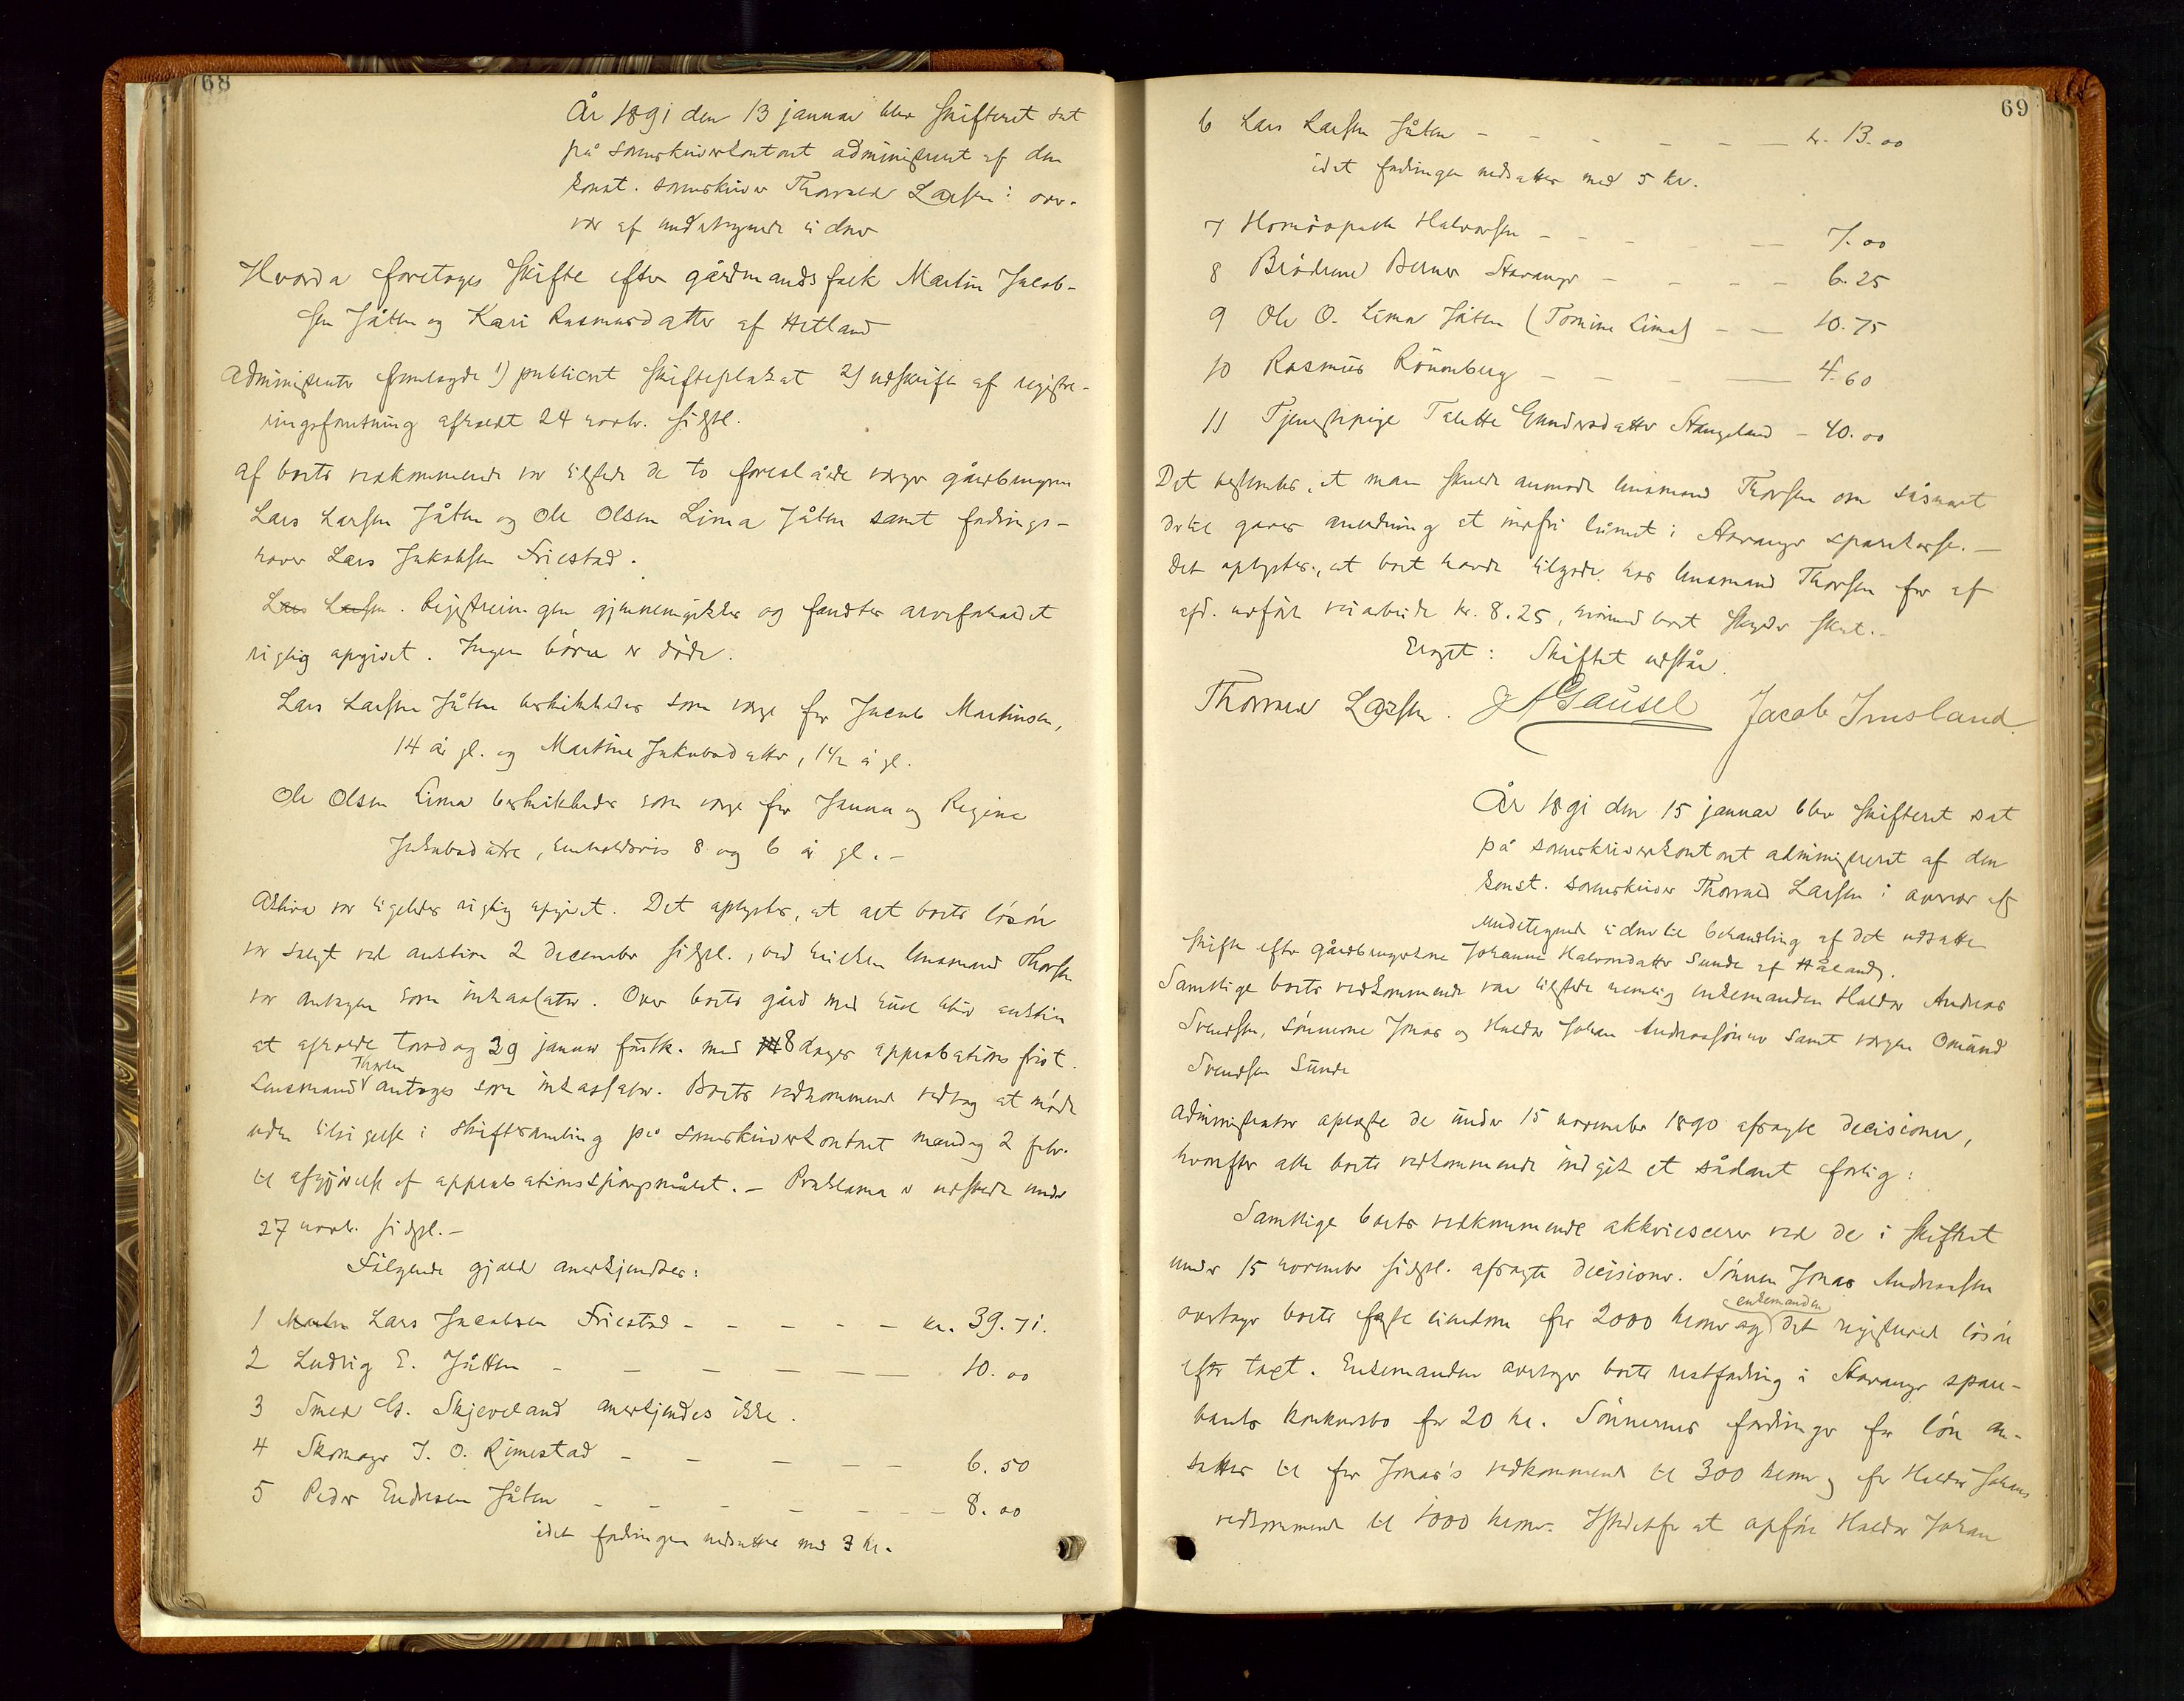 68
År 1891 den 13 januar blev skifteret sat
på sorenskriverkontoret administreret af den
konst. sorenskriver Thorvald Larsen i over-
vær af undertegnede vidner
Hvorda foretoges skifte efter gårdmandsfolk Martin Jacob-
sen Jåtten og Kari Rasmusdatter af Hetland
Administrator fremlagde 1) publiceret skifteplakat 2) udskrift af registre-
ringsforretning afholdt 24 novbr. sidstl.
Af boets vedkommende var tilstede de to foreslåede værger gårdbrugerne
Lars Larsen Jåtten og Ole Olsen Lima Jåtten samt fordrings-
haver Lars Jakobsen Friestad.
Lars Larsen. Registreringen gjennemgikkes og fandtes arveforholdet
rigtig opgivet. Ingen børn er døde.
Lars Larsen Jåtten beskikkedes som værge for Jacob Martinsen,
14 år gl. og Martine Jakobsdatter, 1½ år gl.
Ole Olsen Lima beskikkedes som værge for Janna og Regine
Jakobsdøtre, henholdsvis 8 og 6 år gl. -
Aktiva var ligeledes rigtig opgivet. Det oplystes, at alt boets løsøre
var solgt ved auktion 2 december sidstl., ved hvilken lensmand Thorsen
var antagen som inkassator. Over boets gård med hus blir auktion
at afholde torsdag 29 januar førstk. med 8 dages approbationsfrist.
Lensmand Thorsen antoges som inkassator. Boets vedkommende vedtog at møde
uden tilsigelse i skiftesamling på sorenskriverkontoret mandag 2 febr.
til afgjørelse af approbationsspørgsmålet. - Proklama er udstedt under
27 novb. sidstl. -
Følgende gjæld anerkjendtes:
1 Lars Jacobsen Friestad - - - - - kr. 39.71.
2 Ludvig E. Jåtten - - - - - 10.00
3 Smed Skjeveland anerkjendes ikke.
4 Skomager J. O. Rimestad - - - - - 6.50
5 Peder Endresen Jåtten - - - - - - 8.00
idet fordringen nedsattes med 3 kr.
69
6 Lars Larsen Jåtten - - - - - - kr. 13.00
idet fordringen nedsattes med 5 kr.
7 Homöopath Halvorsen - - - - - 7.00
8 Brødrene Berner Stavanger - - - - 6.25
9 Ole O. Lima Jåtten (Tomine Lima) - - 10.75
10 Rasmus Rønneberg - - - - 4.60
11 Tjenestepige Talette Gundersdatter Stangeland - 40.00
Det bestemtes, at man skulde anmode lensmand Thorsen om såsnart
dertil gaves anledning at indfri lånet i Stavanger sparekasse. -
Det oplystes, at boet havde tilgode hos lensmand Thorsen for af
afd. udført veiarbeide kr. 8.25, hvorimod boet skylder skat. -
Eragtet: Skiftet udstår.
Thorvald Larsen. J A Gausel Jacob Imsland.
År 1891 den 15 januar blev skifteret sat
på sorenskriverkontoret administreret af den
konst. sorenskriver Thorvald Larsen i overvær af
undertegnede vidner til behandling af det udsatte
skifte efter gårdbrugerkone Johanne Halvorsdatter Sunde af Håland.
Samtlige boets vedkommende var tilstede nemlig enkemanden Haldor Andreas
Svendsen, sønnerne Jonas og Haldor Johan Andreassønner samt værgen Omund
Svendsen Sunde
Administrator oplæste de under 15 november 1890 afsagte decisioner,
hvorefter alle boets vedkommende indgik et sådant forlig:
Samtlige boets vedkommende akkviescerer ved de i skiftet
under 15 november sidstl. afsagte decisioner. Sønnen Jonas Andreassen
overtager boets faste eiendom for 2000 kroner og enkemanden det registrerede løsøre
efter taxt. Enkemanden overtager boets restfordring i Stavanger spare-
banks konkursbo for 20 kr. Sønnernes fordringer for løn an-
sattes til for Jonas's vedkommende til 300 kroner og for Haldor Johans
vedkommende til 1000 kroner. Istedetfor at opføre Haldor Johan